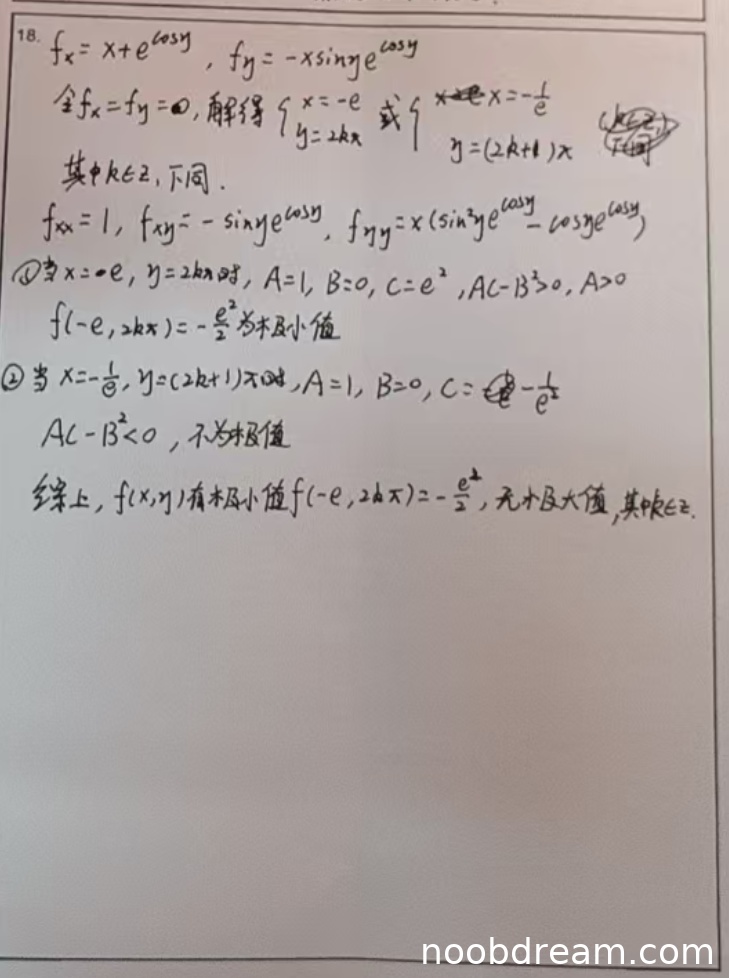 18. fₓ = x + e^{cosy} , f_y = -xsinye^{cosy}
令fₓ = f_y = 0, 解得 { x = -e y = 2kπ 或 { x = -1/e y = (2k+1)π
其中k∈Z, 下同.
fₓₓ = 1, f_{xy} = -sinye^{cosy}, f_{yy} = x(sin²ye^{cosy} - cosye^{cosy})
①当x = -e, y = 2kπ时, A=1, B=0, C=e², AC-B²>0, A>0
f(-e, 2kπ) = -e²/2 为极小值
②当 x = -1/e, y = (2k+1)π时, A=1, B=0, C = -1/e²
AC-B²<0, 不为极值
综上, f(x,y)有极小值f(-e, 2kπ) = -e²/2, 无极大值, 其中k∈Z.
noobdream.com